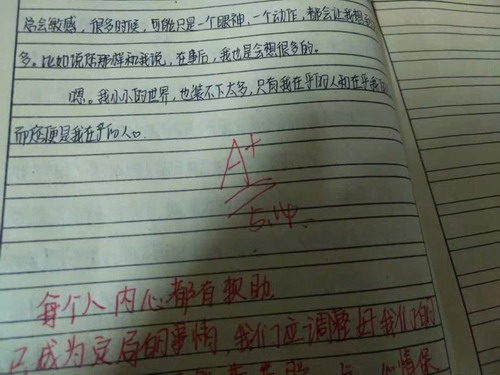 总会敏感，很多时候，可能只是一个眼神，一个动作，都会让我想
多。比如说你那样和我说，在事后，我也是会想很多的。
嗯。我小小的世界，也装不下太多，只有我在乎的人和在乎我
而您便是我在乎的人。
A+
5.14.
每个人内心都有敏
已成为定局的事情，我们应调整好我们的
情保